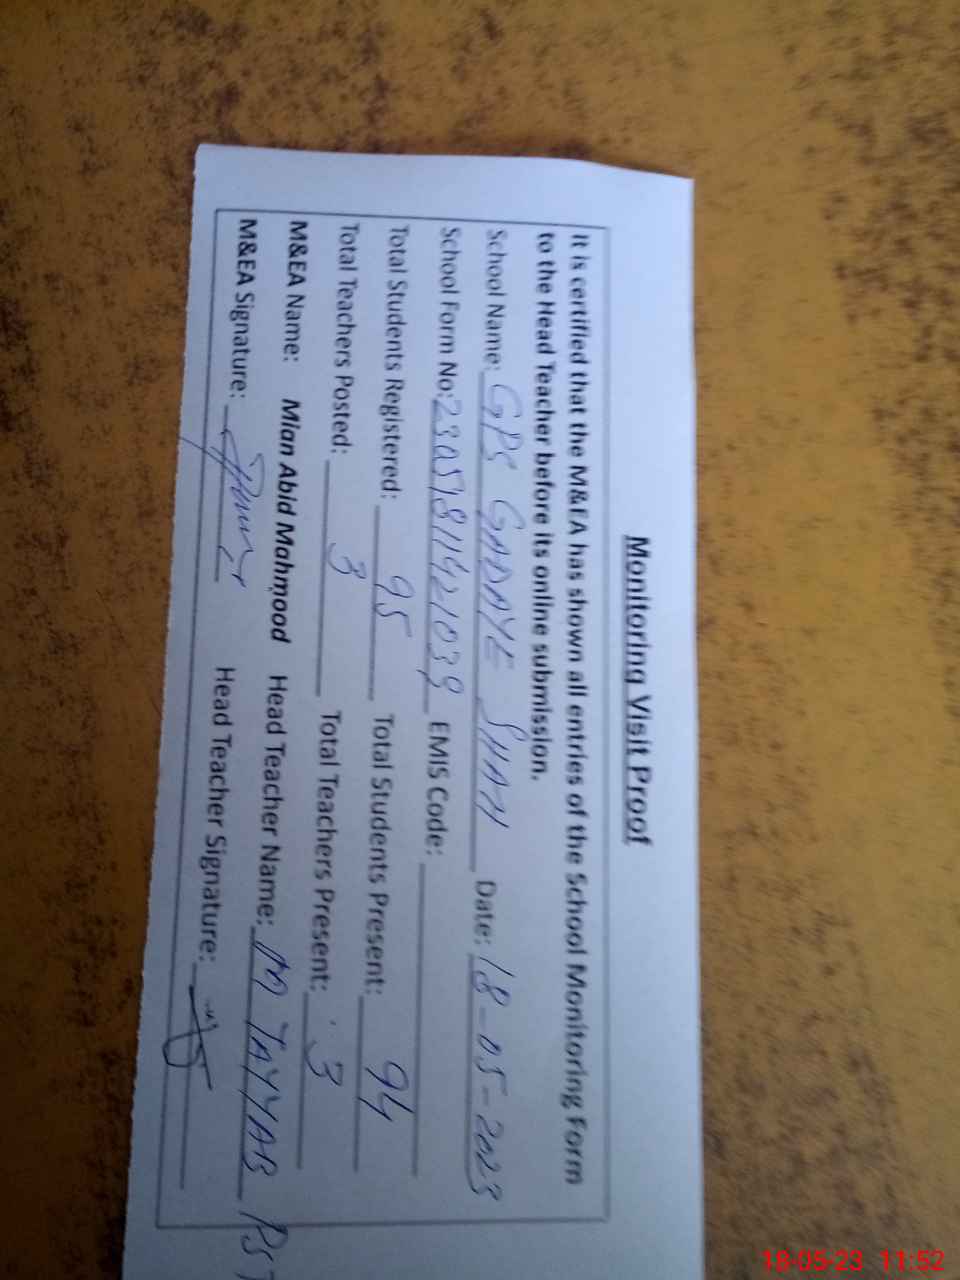 Monitoring Visit Proof
It is certified that the M&EA has shown all entries of the School Monitoring Form
to the Head Teacher before its online submission.
School Name: GPS GADAYE SHAH Date: 18-05-2023
School Form No: 23051811421039 EMIS Code:
Total Students Registered: 95 Total Students Present: 94
Total Teachers Posted: 3 Total Teachers Present: 3
M&EA Name: Mian Abid Mahmood Head Teacher Name: M TAYYAB PST
M&EA Signature: Head Teacher Signature:
18-05-23 11:52